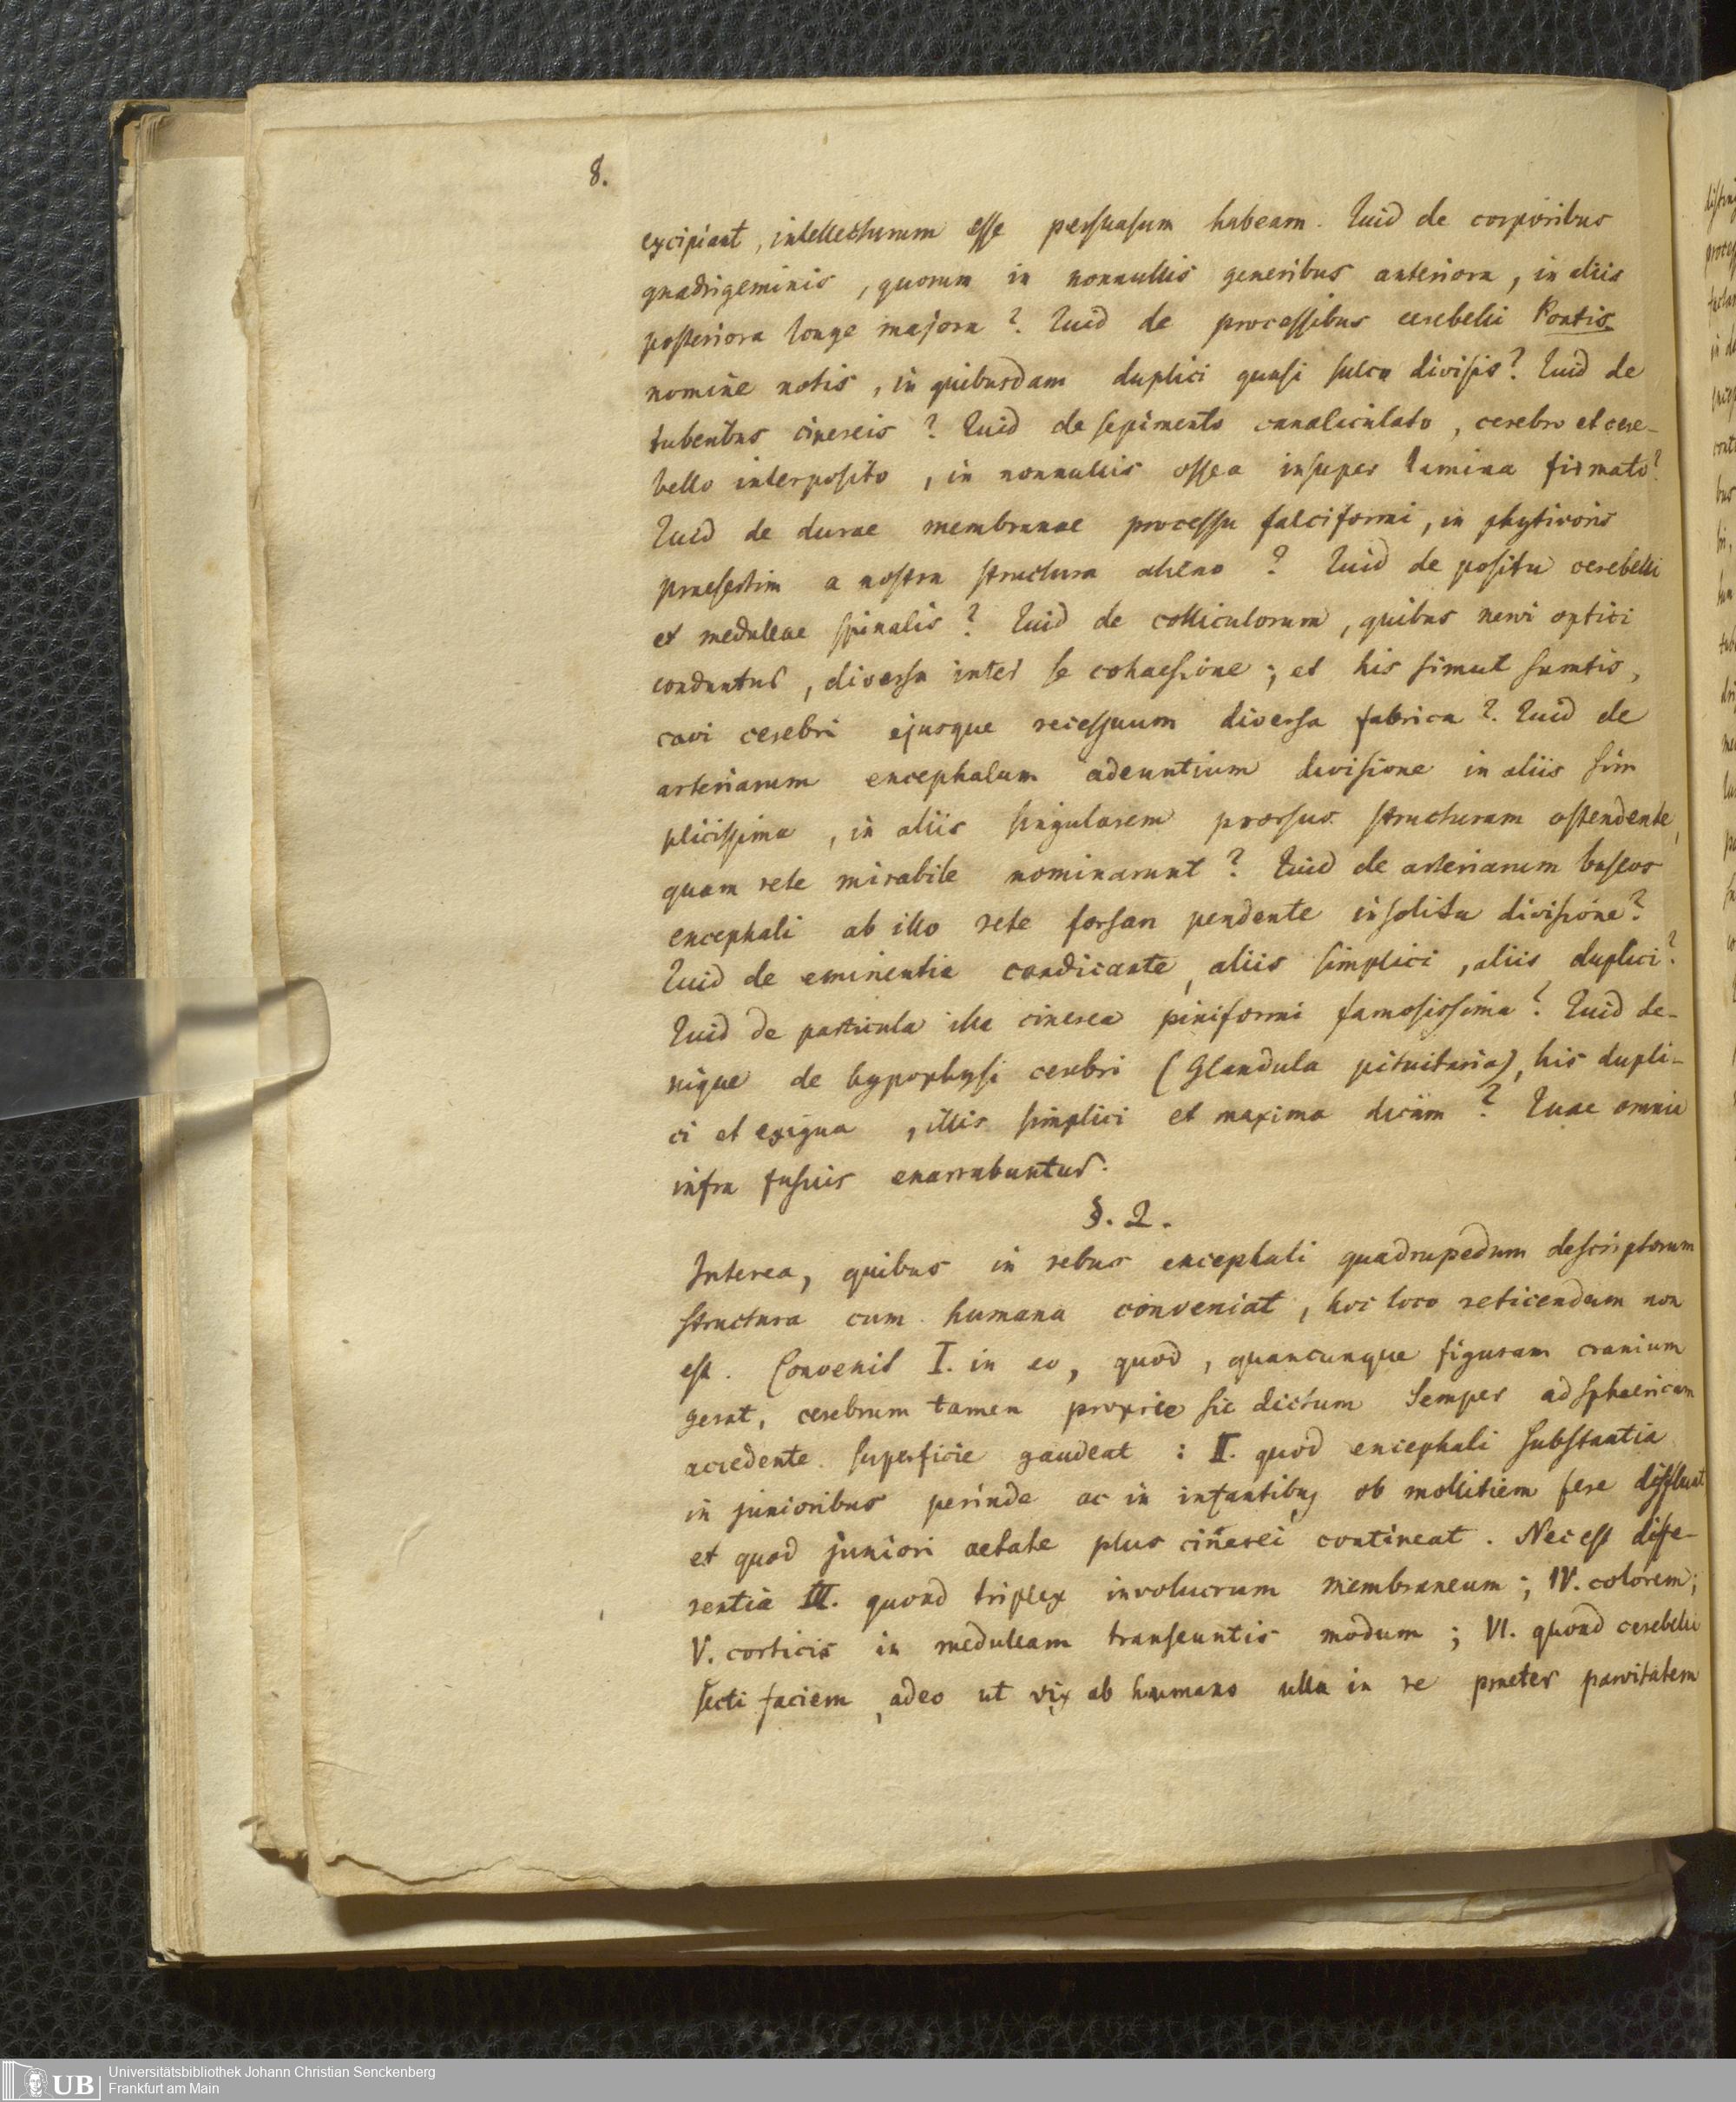 8.
excipiant, intellecturum esse persuasum habeam. Quid de corporibus
quadrigeminis, quorum in nonnullis generibus anteriora, in aliis
posteriora longe majora? Quid de processibus cerebelli Pontis
nomine notis, in quibusdam duplici quasi sulco divisis? Quid de
tuberibus cinereis? Quid de sepimento canaliculato, cerebro et cere-
bello interposito, in nonnullis ossea insuper lamina firmato?
Quid de durae membranae processu falciformi, in phytivoris
praesertim a nostra structura alieno? Quid de positu cerebelli
et medullae spinalis? Quid de colliculorum, quibus nervi optici
conduntur, diversa inter se cohaesione; et his simul sumtis,
cavi cerebri ejusque recessuum diversa fabrica? Quid de
arteriarum encephalum adeuntium divisione in aliis sim
plicissima, in aliis singularem prorsus structuram ostendente,
quam rete mirabile nominarunt? Quid de arteriarum baseos
encephali ab illo rete forsan pendente insolita divisione?
Quid de eminentia candicante, aliis simplici, aliis duplici?
Quid de particula illa cinerea piniformi famosissima? Quid de-
nique de hypophysi cerebri (Glandula pituitaria), his dupli-
ci et exigua, illis simplici et maxima dicam? Quae omnia
infra fusius enarrabuntur.
§. 2.
Interea, quibus in rebus encephali quadrupedum descriptorum
structura cum humana conveniat, hoc loco reticendum non
est. Convenit I. in eo, quod, quancunque figuram cranium
gerat, cerebrum tamen proprie sic dictum semper ad sphaericam
accedente superficie gaudeat: II. quod encephali substantia
in junioribus perinde ac in infantibus ob mollitiem fere diffluat
et quod juniori aetate plus cinerei contineat. Nec est diffe-
rentia III. quoad triplex involucrum membraneum; IV. colorem;
V. corticis in medullam transeuntis modum; VI. quoad cerebelli
secti faciem, adeo ut vix ab humano ulla in re praeter parvitatem
UB
Universitätsbibliothek Johann Christian Senckenberg
Frankfurt am Main